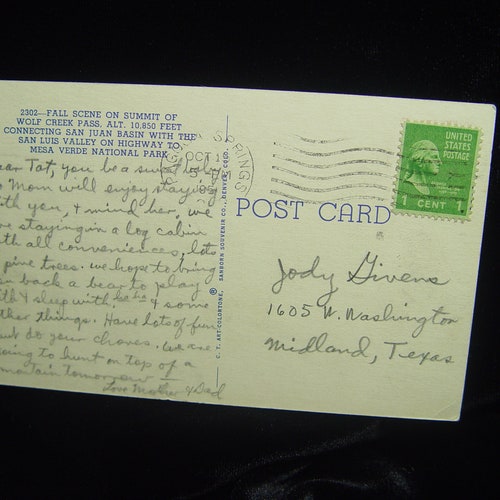 2302—FALL SCENE ON SUMMIT OF
WOLF CREEK PASS, ALT. 10,850 FEET
CONNECTING SAN JUAN BASIN WITH THE
SAN LUIS VALLEY ON HIGHWAY TO
MESA VERDE NATIONAL PARK
Tat, you be a
Mom will enjoy staying
you, & mind her, we
staying in a log cabin
all conveniences, lots
pine trees. we hope to bring
back a bear to play
& sleep with & some
things. Have lots of fun
do your chores. we are
to hunt on top of a
tomorrow
Love Mother & Dad
SPRINGS
OCT
5
® SANBORN SOUVENIR CO., DENVER, COLO.
C. T. ART-COLORTONE,
POST CARD
UNITED
STATES
POSTAGE
1 CENT 1
Jody Givens
1605 W. Washington
Midland, Texas